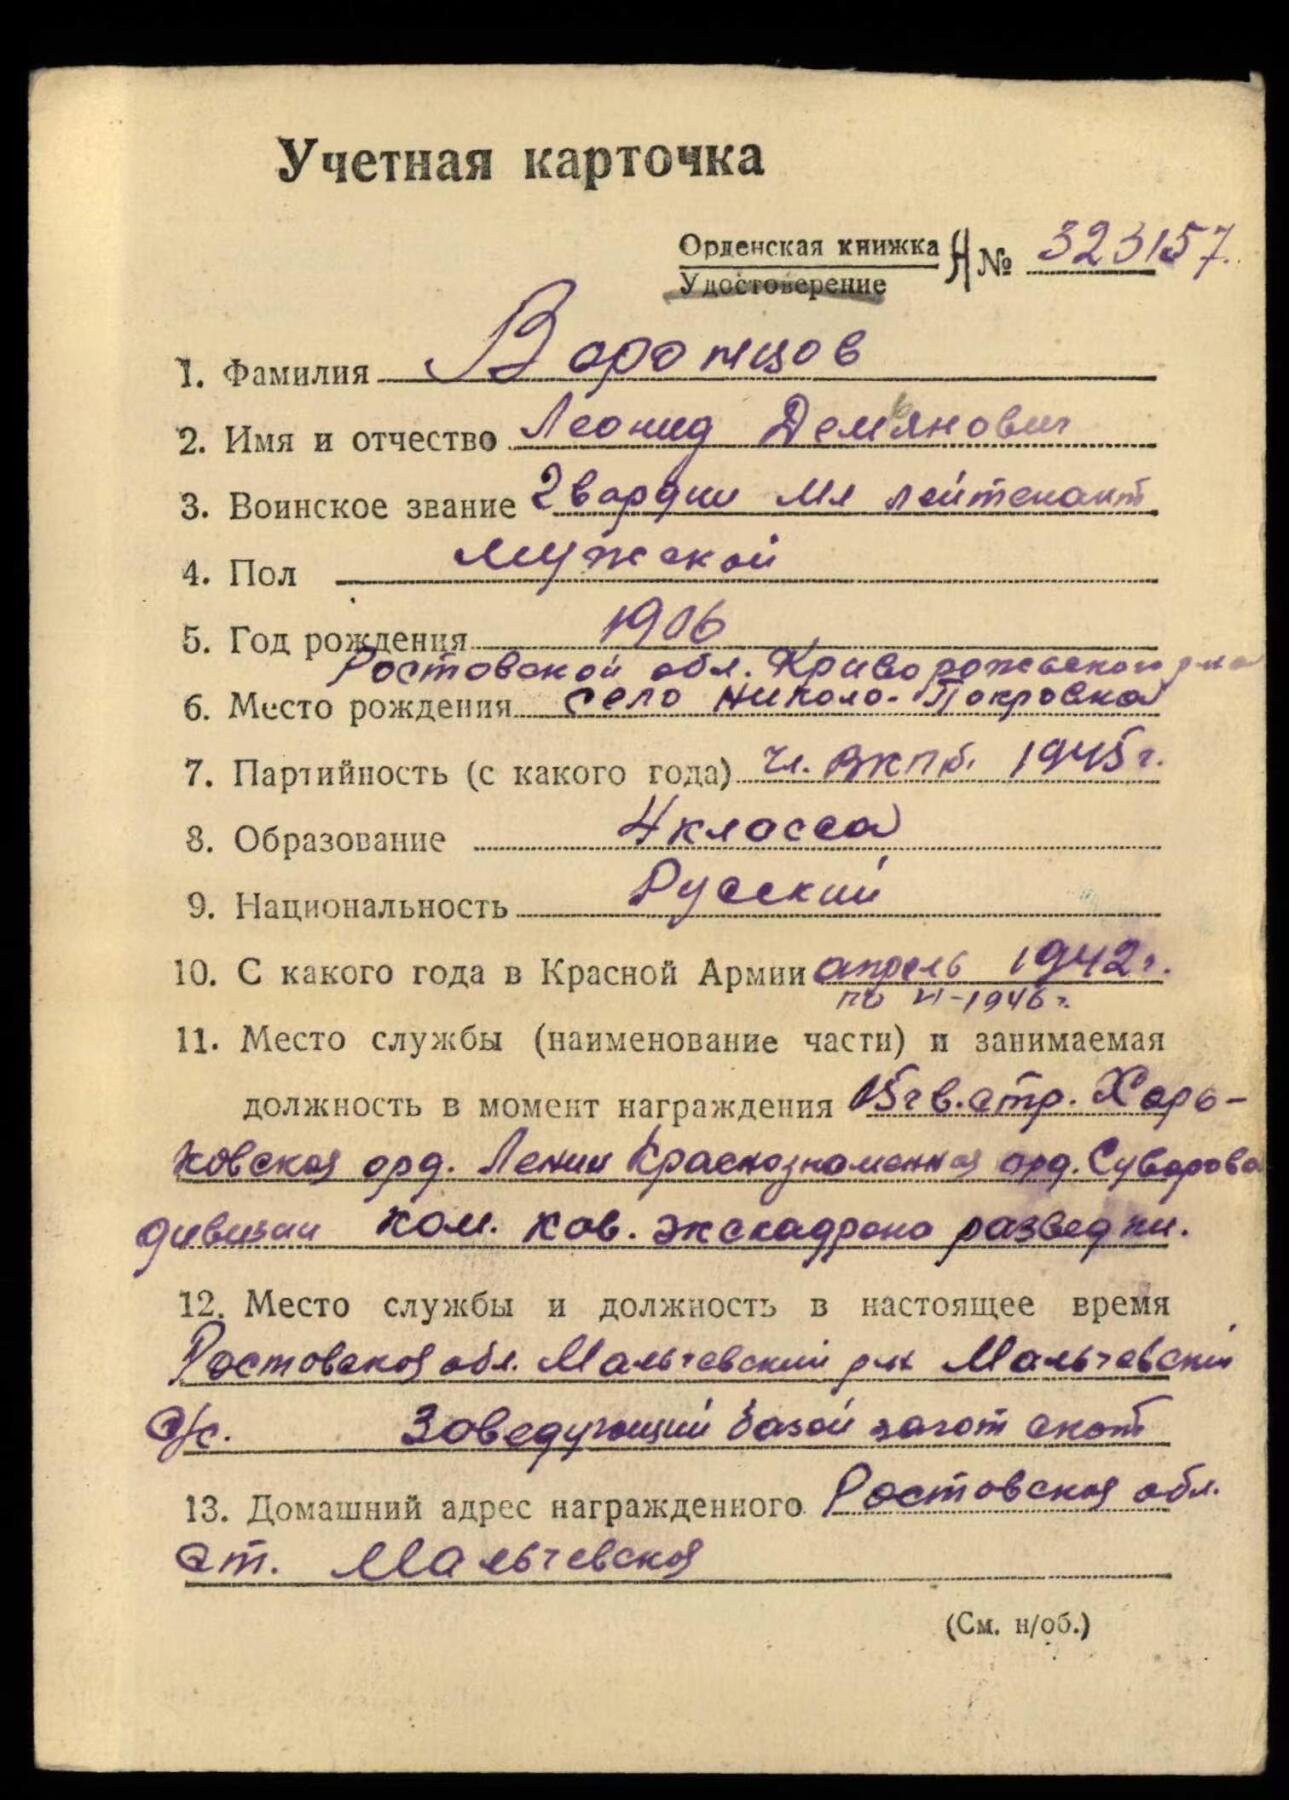 Учетная карточка
Орденская книжка
Удостоверение
№ 323157
1. Фамилия Воронцов
2. Имя и отчество Леонид Демьянович
3. Воинское звание Гвардии мл лейтенант
4. Пол мужской
5. Год рождения 1906
Ростовской обл. Криворожского р-на
6. Место рождения село Николо-Покровка
7. Партийность (с какого года) чл. ВКПб. 1945 г.
8. Образование 4 класса
9. Национальность Русский
10. С какого года в Красной Армии апрель 1942 г.
по VI-1946 г.
11. Место службы (наименование части) и занимаемая
должность в момент награждения 15 гв. стр. Харь-
ковская орд. Ленин Краснознаменная орд. Суворова
дивизии ком. кав. эскадрона разведки.
12. Место службы и должность в настоящее время
Ростовская обл. Мальчевский р-н Мальчевский
с/с. Заведующий базой загот скот
13. Домашний адрес награжденного Ростовская обл.
ст. Мальчевская
(См. н/об.)